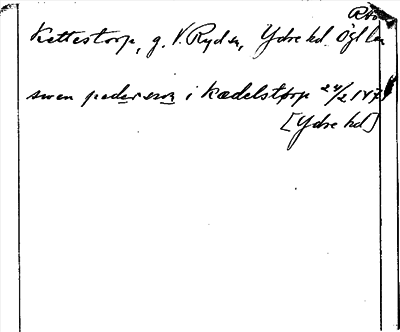 Kettestorp, g. V. Ryd sn, Ydre hd. Ögl län
swen pederson i kædelstorp 24/2
[Ydre hd]